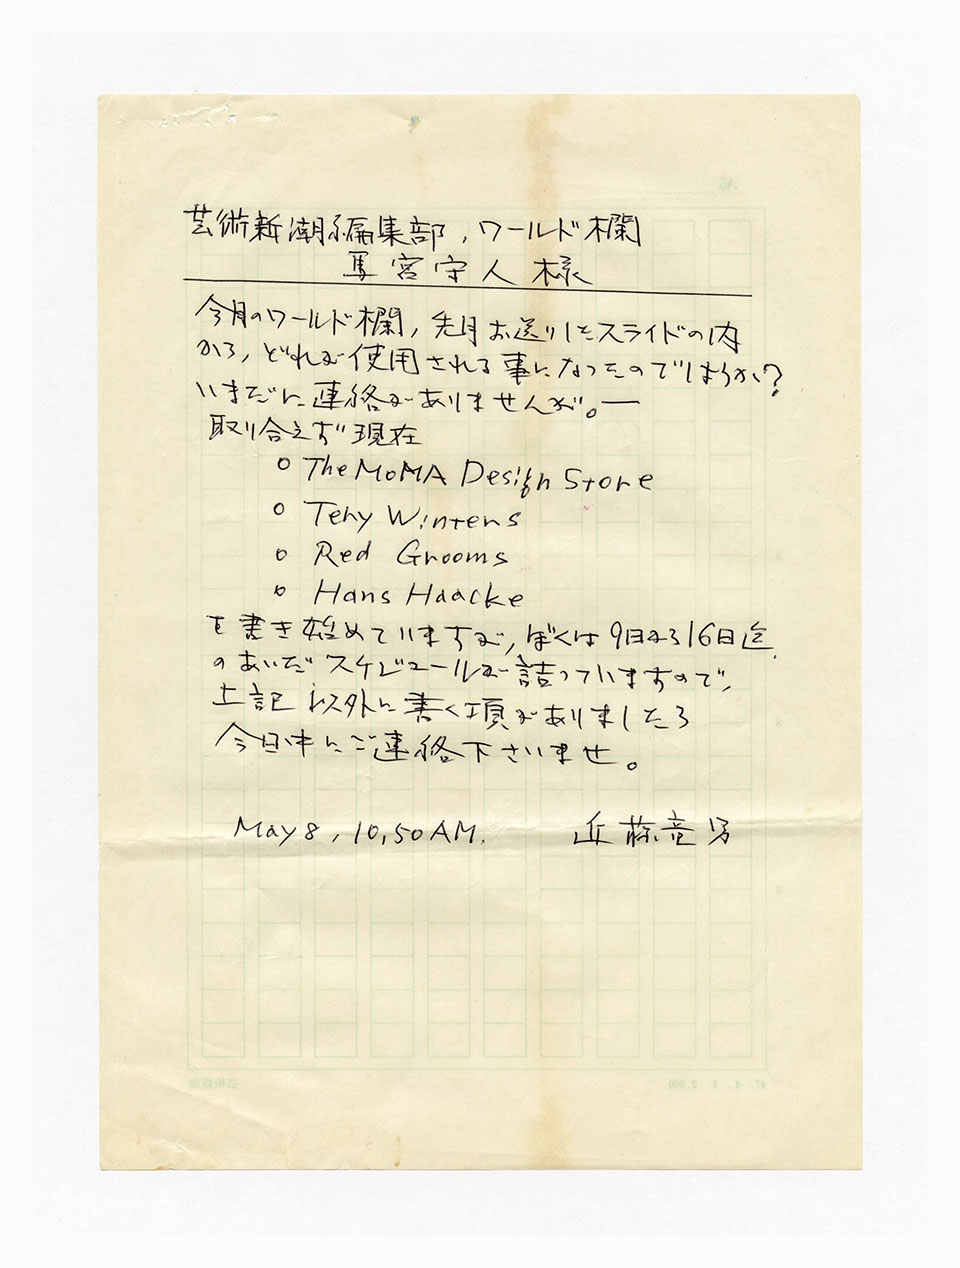 芸術新潮編集部, ワールド欄
馬宮守人様
今月のワールド欄, 先月お送りしたスライドの内
から, どれが使用される事になったのでしょうか?
いまだに連絡がありませんが。—
取り合えず現在
○ The MoMA Design Store
○ Terry Winters
○ Red Grooms
○ Hans Haacke
を書き始めていますが, ぼくは9日から16日迄
のあいだスケジュールが詰っていますので,
上記以外に書く項がありましたら
今日中にご連絡下さいませ。
May 8, 10,50 AM. 近藤竜男